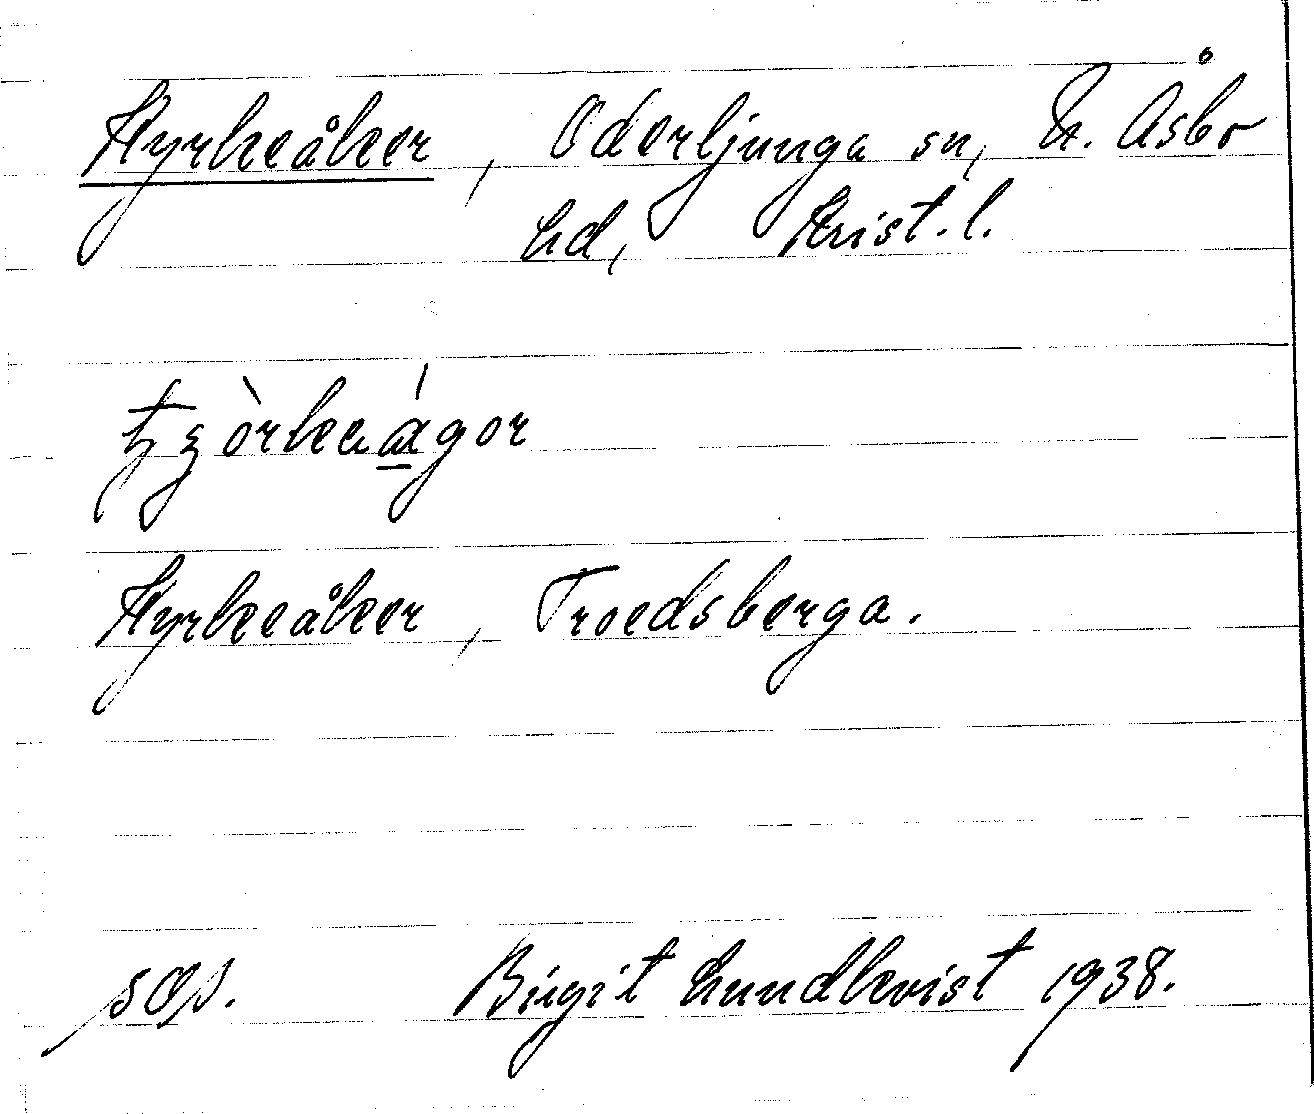 Kyrkeåker, Oderljunga sn, N. Åsbo
hd, Krist. l.
Kyrkeåker, Troedsberga.
Birgit Lundkvist 1938.